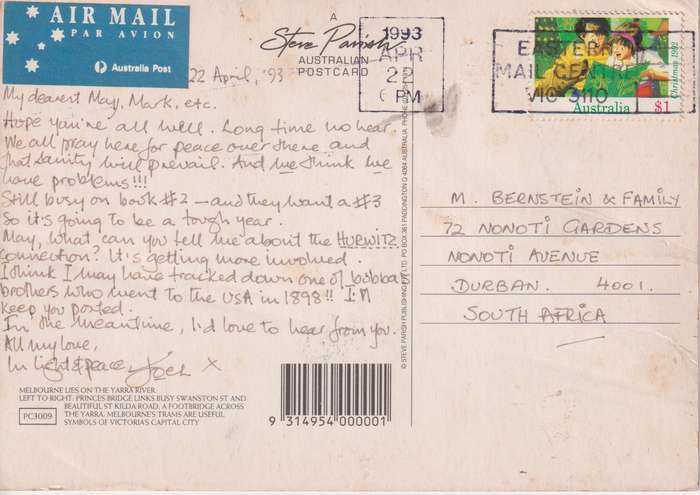 AIR MAIL
PAR AVION
Australia Post
A
Steve Parish
AUSTRALIAN
POSTCARD
1993
APR
22
6 PM
EASTERN
MAIL CENTRE
VIC 3110
Christmas 1992
Australia $1
22 April, '93
My dearest May, Mark, etc.
Hope you're all well. Long time no hear.
We all pray here for peace over there and
that sanity will prevail. And we think we
have problems!!!
Still busy on book #2 — and they want a #3
So it's going to be a tough year.
May, what can you tell me about the HURWITZ
connection? It's getting more involved.
I think I may have tracked down one of bobba's
brothers who went to the USA in 1898!! I'll
keep you posted.
In the meantime, I'd love to hear from you.
All my love,
In light & peace, Joel X
MELBOURNE LIES ON THE YARRA RIVER.
LEFT TO RIGHT: PRINCES BRIDGE LINKS BUSY SWANSTON ST AND
BEAUTIFUL ST KILDA ROAD. A FOOTBRIDGE ACROSS
THE YARRA. MELBOURNE'S TRAMS ARE USEFUL
SYMBOLS OF VICTORIA'S CAPITAL CITY
PC3009
9 314954 000001
© STEVE PARISH PUBLISHING PTY. LTD. PO BOX 361 PADDINGTON Q 4064 AUSTRALIA. PHONE
M. BERNSTEIN & FAMILY
72 NONOTI GARDENS
NONOTI AVENUE
DURBAN. 4001.
SOUTH AFRICA